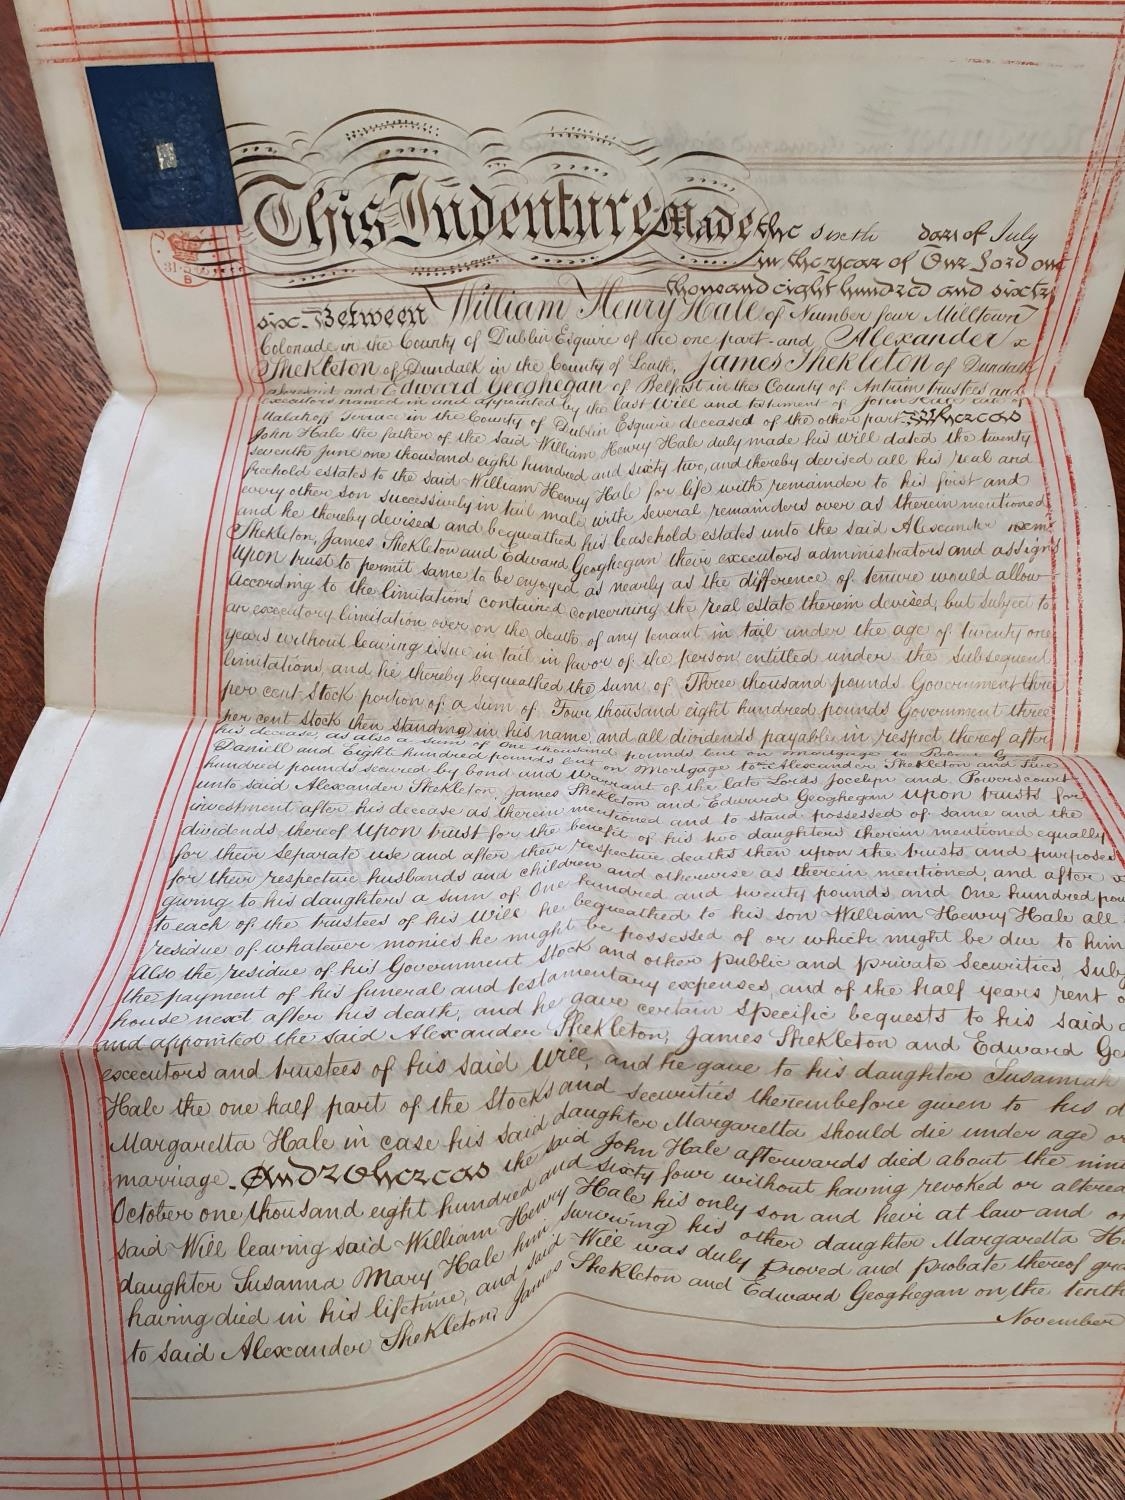 This Indenture Made the sixth day of July
in the year of Our Lord one
thousand eight hundred and sixty
six. Between William Henry Hale of Number four Milltown
Colonade in the County of Dublin Esquire of the one part and Alexander
Shekleton of Dundalk in the County of Louth, James Shekleton of Dundalk
aforesaid and Edward Geoghegan of Belfast in the County of Antrim trustees and
executors named in and appointed by the last Will and testament of John Hale late of
Malakoff Terrace in the County of Dublin Esquire deceased of the other part. Whereas
John Hale the father of the said William Henry Hale duly made his Will dated the twenty
seventh June one thousand eight hundred and sixty two, and thereby devised all his real and
freehold estates to the said William Henry Hale for life with remainder to his first and
every other son successively in tail male with several remainders over as therein mentioned
and he thereby devised and bequeathed his leasehold estates unto the said Alexander
Shekleton, James Shekleton and Edward Geoghegan their executors administrators and assigns
upon trust to permit same to be enjoyed as nearly as the difference of tenure would allow
according to the limitations contained concerning the real estate therein devised, but subject to
an executory limitation over on the death of any tenant in tail under the age of twenty one
years without leaving issue in tail in favor of the person entitled under the subsequent
limitations, and he thereby bequeathed the sum of Three thousand pounds Government three
per cent Stock portion of a sum of Four thousand eight hundred pounds Government three
per cent stock then standing in his name, and all dividends payable in respect thereof after
his decease, as also a sum of One thousand pounds lent on mortgage to
Daniell and Eight hundred pounds lent on Mortgage to Alexander Shekleton and Five
hundred pounds secured by bond and Warrant of the late Lords Jocelyn and Powerscourt
unto said Alexander Shekleton, James Shekleton and Edward Geoghegan upon trusts for
investment after his decease as therein mentioned and to stand possessed of same and the
dividends thereof Upon trust for the benefit of his two daughters therein mentioned equally
for their separate use and after their respective deaths then upon the trusts and purposes
for their respective husbands and children and otherwise as therein mentioned, and after
giving to his daughters a sum of One hundred and twenty pounds and One hundred
to each of the trustees of his Will he bequeathed to his son William Henry Hale all
residue of whatever monies he might be possessed of or which might be due to him
Also the residue of his Government Stock and other public and private Securities,
the payment of his funeral and testamentary expenses, and of the half years rent
house next after his death, and he gave certain specific bequests to his said
and appointed the said Alexander Shekleton, James Shekleton and Edward
executors and trustees of his said Will, and he gave to his daughter Susannah
Hale the one half part of the Stocks and securities thereinbefore given to his
Margaretta Hale in case his said daughter Margaretta should die under age or
marriage. And Whereas the said John Hale afterwards died about the
October one thousand eight hundred and sixty four without having revoked or altered
said Will leaving said William Henry Hale his only son and heir at law and
daughter Susanna Mary Hale him surviving his other daughter Margaretta
having died in his lifetime, and said Will was duly proved and probate thereof
to said Alexander Shekleton, James Shekleton and Edward Geoghegan on the tenth
November